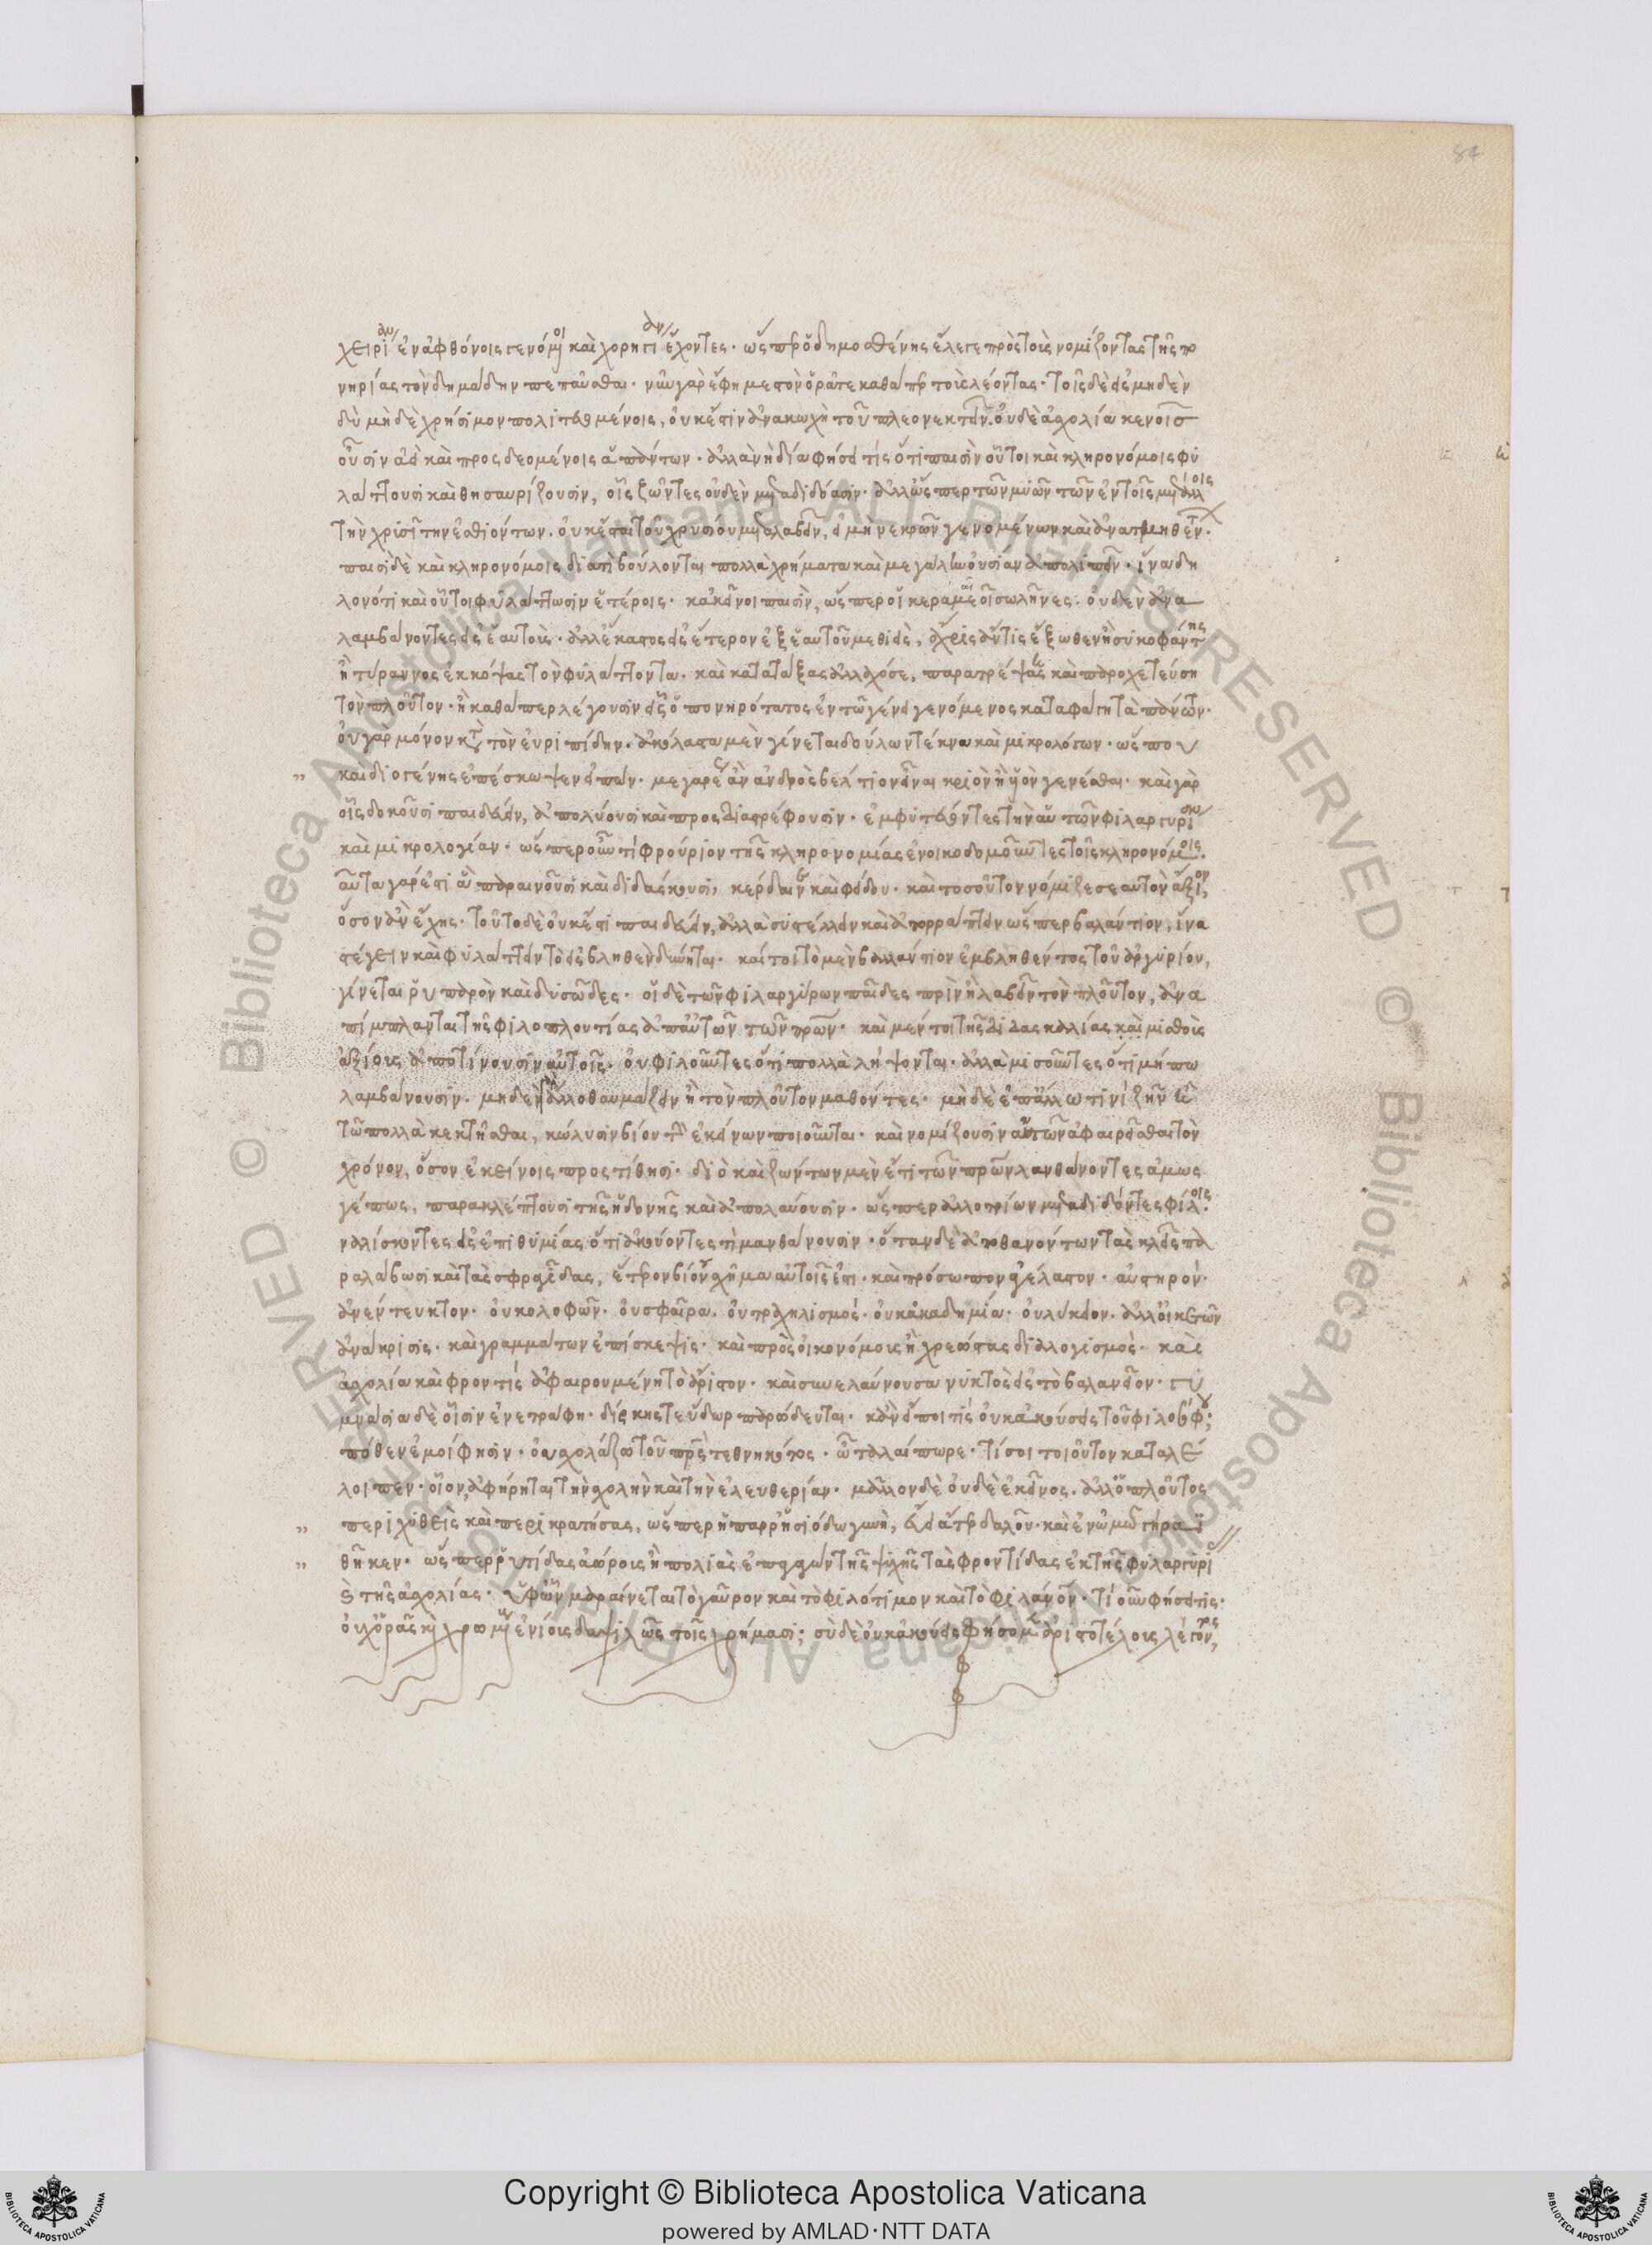 84
χειρίαν ἐν ἀφθόνοις γενόμενοι καὶ χορηγίαν ἔχοντες· ὥσπερ ὁ δημοσθένης ἔλεγε πρὸς τοὺς νομίζοντας τῆς πο
νηρίας τὸν δημάδην πεπαῦσθαι· νῦν γὰρ ἔφη μεστὸν ὁρᾶτε καθάπερ τοὺς λέοντας· τοῖς δὲ εἰς μηδὲν
δὺ μὴ δὲ χρήσιμον πολιτευομένοις, οὐκ ἔστιν ἀνακωχὴ τοῦ πλεονεκτεῖν· οὐδὲ ἀσχολία κενοῖς
οὖσιν ἀεὶ καὶ προσδεομένοις ἁπάντων· ἀλλὰ νὴ δία φήσει τις ὅτι παισὶν οὗτοι καὶ κληρονόμοις φυ
λάττουσι καὶ θησαυρίζουσιν, οἷς ζῶντες οὐδὲν μεταδιδόασιν· ἀλλ' ὥσπερ τῶν μυῶν τῶν ἐν τοῖς μετάλλοις
τὴν χρυσῖτιν ἐσθιόντων. οὐκ ἔσται τοῦ χρυσίου μεταλαβεῖν, εἰ μὴ νεκρῶν γενομένων καὶ ἀνατμηθέντων.
παισὶ δὲ καὶ κληρονόμοις διατί βούλονται πολλὰ χρήματα καὶ μεγάλην οὐσίαν ἀπολιπεῖν· ἵνα δη
λονότι καὶ οὗτοι φυλάττωσιν ἑτέροις· κἀκεῖνοι παισὶν, ὥσπερ οἱ κεραμεοῖ σωλῆνες. οὐδὲν ἀνα
λαμβάνοντες εἰς ἑαυτοὺς· ἀλλ' ἕκαστος εἰς ἕτερον ἐξ ἑαυτοῦ μεθιεὶς, ἄχρις ἄν τις ἔξωθεν ἢ συκοφάντης
ἢ τύραννος ἐκκόψας τὸν φυλάττοντα· καὶ κατάξας ἀλλαχόσε, παρατρέψας καὶ παροχετεύση
τὸν πλοῦτον· ἢ καθάπερ λέγουσιν εἷς ὁ πονηρότατος ἐν τῶ γένει γενόμενος καταφάγη τὰ πάντων·
οὐ γὰρ μόνον κατὰ τὸν εὐριπίδην. ἀκόλαστα μὲν γίνεται δούλων τέκνα καὶ μικρολόγων· ὥς που
καὶ διογένης ἐπέσκωψεν εἰπὼν· μεγαρέως ἀνδρὸς βέλτιον εἶναι κριὸν ἢ υἱὸν γενέσθαι· καὶ γὰρ
οἷς δοκοῦσι παιδεύειν, ἀπολύουσι καὶ προσδιαστρέφουσιν· ἐμφυτεύοντες τὴν αὑτῶν φιλαργυρίαν
καὶ μικρολογίαν· ὥσπερ οὖν τι φρούριον τῆς κληρονομίας ἐνοικοδομοῦντες τοῖς κληρονόμοις.
ταῦτα γάρ ἐστι ἃ παραινοῦσι καὶ διδάσκουσι, κέρδαινε καὶ φείδου· καὶ τοσοῦτον νόμιζε σεαυτὸν ἄξιον,
ὅσον ἂν ἔχης· τοῦτο δὲ οὐκ ἔστι παιδεύειν, ἀλλὰ συστέλλειν καὶ ἀπορράπτειν ὥσπερ βαλάντιον, ἵνα
στέγειν καὶ φυλάττειν τὸ εἰσβληθὲν δύνηται· καίτοι τὸ μὲν βαλλάντιον ἐμβληθέντος τοῦ ἀργυρίου,
γίνεται ῥυπαρὸν καὶ δυσῶδες· οἱ δὲ τῶν φιλαργύρων παῖδες πρὶν ἢ λαβεῖν τὸν πλοῦτον, ἀνα
πίμπλανται τῆς φιλοπλουτίας ἀπ' αὐτῶν τῶν πρῶν· καὶ μέντοι τῆς διδασκαλίας καὶ μισθοὺς
ἀξίους ἀποτίνουσιν αὐτοῖς· οὐ φιλοῦντες ὅτι πολλὰ λήψονται· ἀλλὰ μισοῦντες ὅτι μήπω
λαμβάνουσιν. μηδὲν γὰρ ἄλλο θαυμάζειν ἢ τὸν πλοῦτον μαθόντες· μηδὲ ἐπ' ἄλλω τινὶ ζῆν ἢ
τῶ πολλὰ κεκτῆσθαι, κώλυσιν βίου τὸν ἐκείνων ποιοῦνται· καὶ νομίζουσιν αὑτῶν ἀφαιρεῖσθαι τὸν
χρόνον, ὅσον ἐκείνοις προστίθησι· διὸ καὶ ζώντων μὲν ἔτι τῶν πρῶν λανθάνοντες ἁμως
γέπως, παρακλέπτουσι τῆς ἡδονῆς καὶ ἀπολαύουσιν· ὥσπερ ἀλλοτρίων μεταδιδόντες φίλοις.
ναλίσκοντες εἰς ἐπιθυμίας ὅτι ἀκούοντες τὶ μανθάνουσιν· ὅταν δὲ ἀποθανόντων τὰς κλεῖς πα
ραλάβωσι καὶ τὰς σφραγῖδας, ἕτερον βίου σχῆμα αὐτοῖς ἐστι· καὶ πρόσωπον ἀγέλαστον· αὐστηρόν·
ἀνέντευκτον· οὐ κολοφῶν· οὐ σφαῖρα. οὐ τραχηλισμός· οὐκ ἀκαδημία· οὐ λύκειον· ἀλλ' οἰκετῶν
ἀνάκρισις· καὶ γραμμάτων ἐπίσκεψις· καὶ πρὸς οἰκονόμους ἢ χρεώστας διαλογισμὸς· καὶ
ἀσχολία καὶ φροντὶς ἀφαιρουμένη τὸ ἄριστον· καὶ συνελαύνουσα νυκτὸς εἰς τὸ βαλανεῖον· γυ
μνάσια δὲ οἷσιν ἐνετράφη· δίρκης τε ὕδωρ παρώδευται· κἂν εἴποι τίς οὐκ ἀκούσεις τοῦ φιλοσόφου;
πόθεν ἐμοὶ φησιν· οὐ σχολάζω τοῦ πρς τεθνηκότος· ὦ ταλαίπωρε· τί σοι τοιοῦτον καταλέ
λοιπεν· οἷον ἀφήρηται τὴν σχολὴν καὶ τὴν ἐλευθερίαν· μᾶλλον δὲ οὐδὲ ἐκεῖνος. ἀλλ' ὁ πλοῦτος
περιχυθεὶς καὶ περικρατήσας, ὥσπερ ἡ παρ' ἡσιόδω γυνὴ, εὕει ἄτερ δαλοῦ· καὶ ἐν ὠμῶ γήραϊ
θῆκεν· ὥσπερ ῥυτίδας ἀώρους ἢ πολιὰς ἐπάγων τῆς ψυχῆς τὰς φροντίδας ἐκ τῆς φιλαργυρί
ας τῆς ἀσχολίας· ὑφ' ὧν μαραίνεται τὸ γαῦρον καὶ τὸ φιλότιμον καὶ τὸ φιλάνθρωπον· τί οὖν φήσει τις·
οὐχ ὁρᾷς καὶ χρωμένους ἐνίους δαψιλῶς τοῖς χρήμασι; σὺ δὲ οὐκ ἀκούεις φήσομεν ἀριστοτέλους λέγοντος,